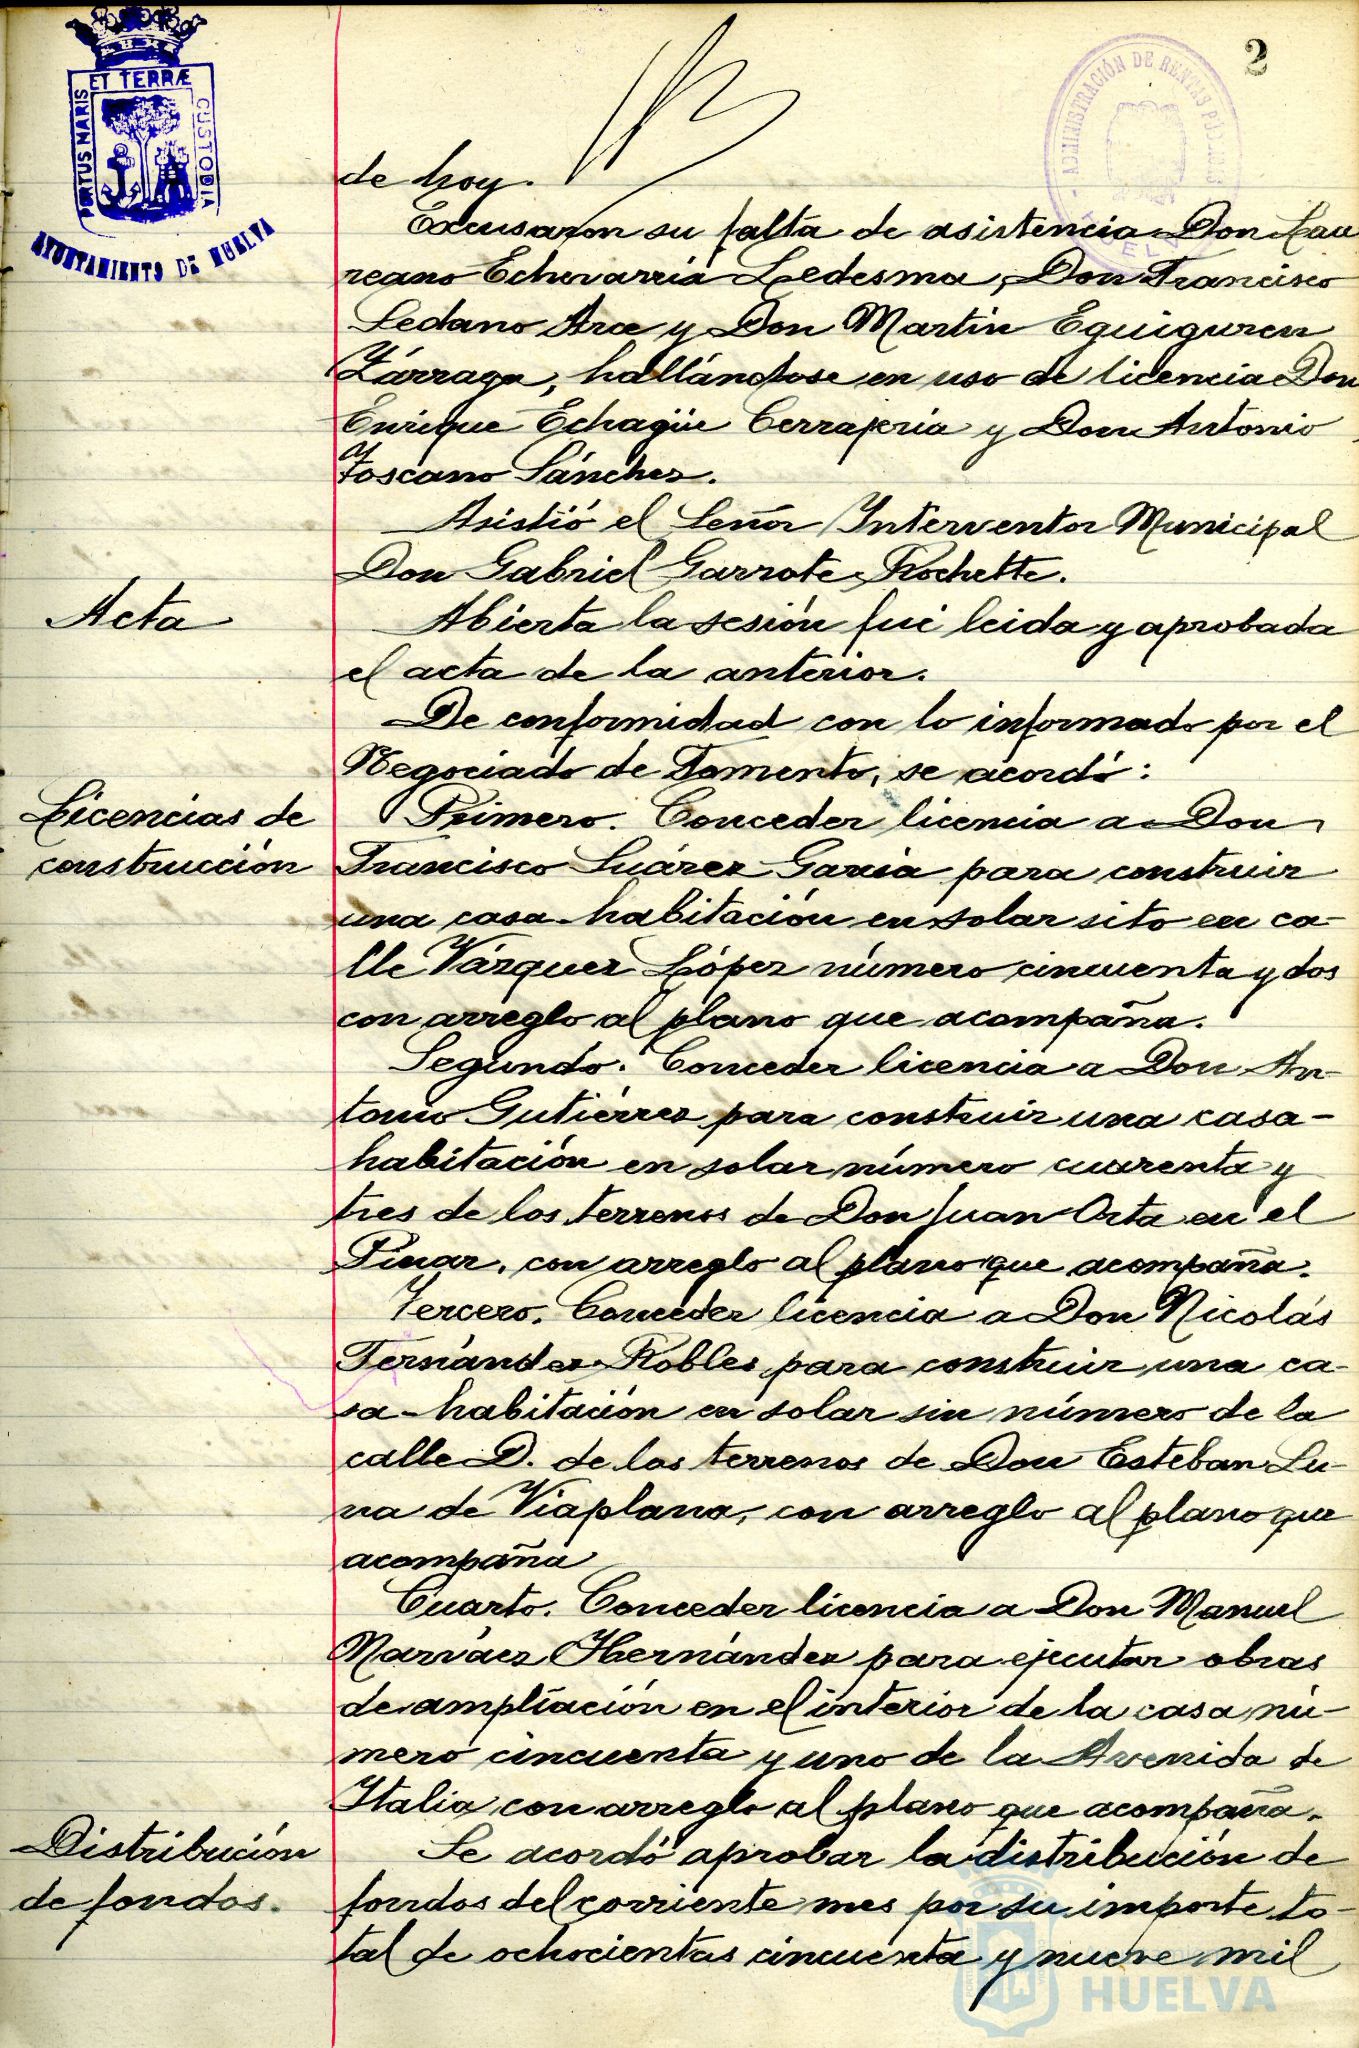 2
ET TERRÆ
PORTUS MARIS
CUSTODIA
AYUNTAMIENTO DE HUELVA
ADMINISTRACIÓN DE RENTAS PÚBLICAS
HUELVA
de hoy.
Excusaron su falta de asistencia Don Lau
reano Echevarria Ledesma, Don Francisco
Sedano Arce y Don Martin Eguiguren
Zárraga, hallándose en uso de licencia Don
Enrique Echagüe Cerrajeria y Don Antonio
y
Toscano Sánchez.
Asistió el Señor Interventor Municipal
Don Gabriel Garrote Rochette.
Acta
Abierta la sesión fué leida y aprobada
el acta de la anterior.
De conformidad con lo informado por el
Negociado de Fomento, se acordó:
Licencias de
construcción
Primero. Conceder licencia a Don
Francisco Suárez Garcia para construir
una casa-habitación en solar sito en ca-
lle Vázquez López número cincuenta y dos
con arreglo al plano que acompaña.
Segundo. Conceder licencia a Don An-
tonio Gutiérrez para construir una casa-
habitación en solar número cuarenta y
tres de los terrenos de Don Juan Orta en el
Pinar, con arreglo al plano que acompaña.
Tercero. Conceder licencia a Don Nicolás
Fernández Robles para construir una ca-
sa-habitación en solar sin número de la
calle D. de los terrenos de Don Esteban Lu-
na de Viaplana, con arreglo al plano que
acompaña
Cuarto. Conceder licencia a Don Manuel
Narváez Hernández para ejecutar obras
de ampliación en el interior de la casa nú-
mero cincuenta y uno de la Avenida de
Italia con arreglo al plano que acompaña.
Distribución
de fondos.
Se acordó aprobar la distribución de
fondos del corriente mes por su importe to-
tal de ochocientas cincuenta y nueve mil
HUELVA